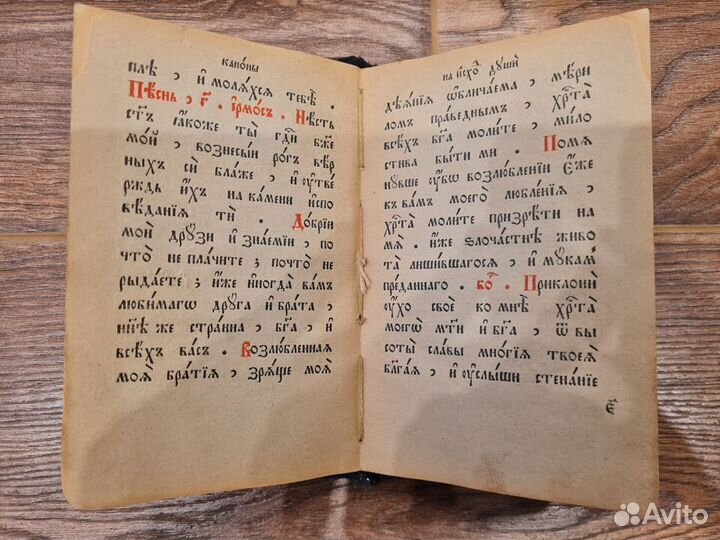 КАНО́НЫ
плѣ̀ , и҆ молѧ́хсѧ тебѣ̀ .
Пѣ́снь , г҃ . і҆рмо́съ . Нѣ́сть
ст҃ъ ꙗ҆́коже ты̀ гдⷭ҇и бж҃е
мо́й , вознесы́и ро́гъ вѣ́р
ныхъ сѝ бл҃же , и҆ ᲂу҆твѐ
ржⷣь и҆́хъ на ка́мени и҆спо
вѣ́данїѧ тѝ . До́брїи
моѝ дрꙋ́зи и҆ зна́емїи , по
что̀ не пла́чите ; почто̀ не
рыда́ете ; и҆́же и҆ногда̀ ва́мъ
люби́маго дрꙋ́га и҆ бра́та ,
нн҃ѣ же стра́нна , бг҃а , и҆
всѣ́хъ ва́съ . Возлю́бленнаѧ
моѧ̀ бра́тїѧ , зрѧ́ще моѧ̀
НА И҆СХО́Д ДꙊШѝ
дѣѧ́нїѧ ѡ҆блича́ема , мѣ́ри
ломъ пра́веднымъ , хрⷭ҇та̀
всѣ́хъ бг҃а моли́те , ми́ло
стива бы́ти мѝ . Помѧ
нꙋ́вше ᲂу҆̀бо возлюбле́нїи є҆́же
къ ва́мъ моего̀ любле́нїѧ ,
хрⷭ҇та̀ моли́те призрѣ́ти на
мѧ̀ . и҆́же ѕлоча́стнѣ живо
та̀ лиши́вшагосѧ и҆ мꙋ́камъ
пре́даннаго . бо . Приклонѝ
ᲂу҆́хо своѐ ко мнѣ̀ хрⷭ҇та̀
моегѡ̀ мт҃и и҆ бг҃а , ѿ вы
соты̀ сла́вы мно́гїѧ твоеѧ̀
бл҃га́ѧ , и҆ ᲂу҆слы́ши стена́нїе
є҃
Avito